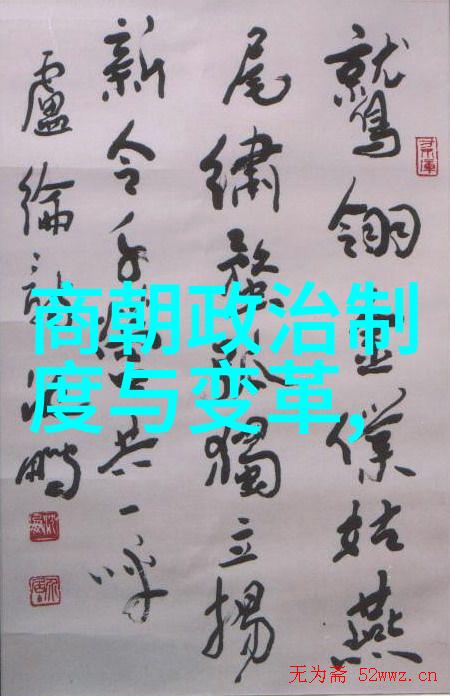 鷲翎金僕姑燕
尾繡蝥弧獨立揚
新令千營共一呼
盧綸詩鵬
商朝政治制
度与变革,
无为斋 52wwz.cn